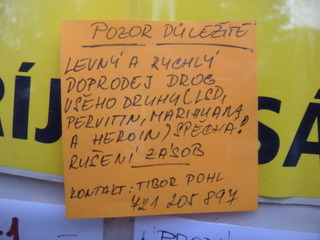 POZOR DŮLEŽITÉ
LEVNÝ A RYCHLÝ
DOPRODEJ DROG
VŠEHO DRUHU (LSD,
PERVITIN, MARIHUANA,
A HEROIN) SPĚCHÁ!
RUŠENÍ ZÁSOB
KONTAKT: TIBOR POHL
721 205 897